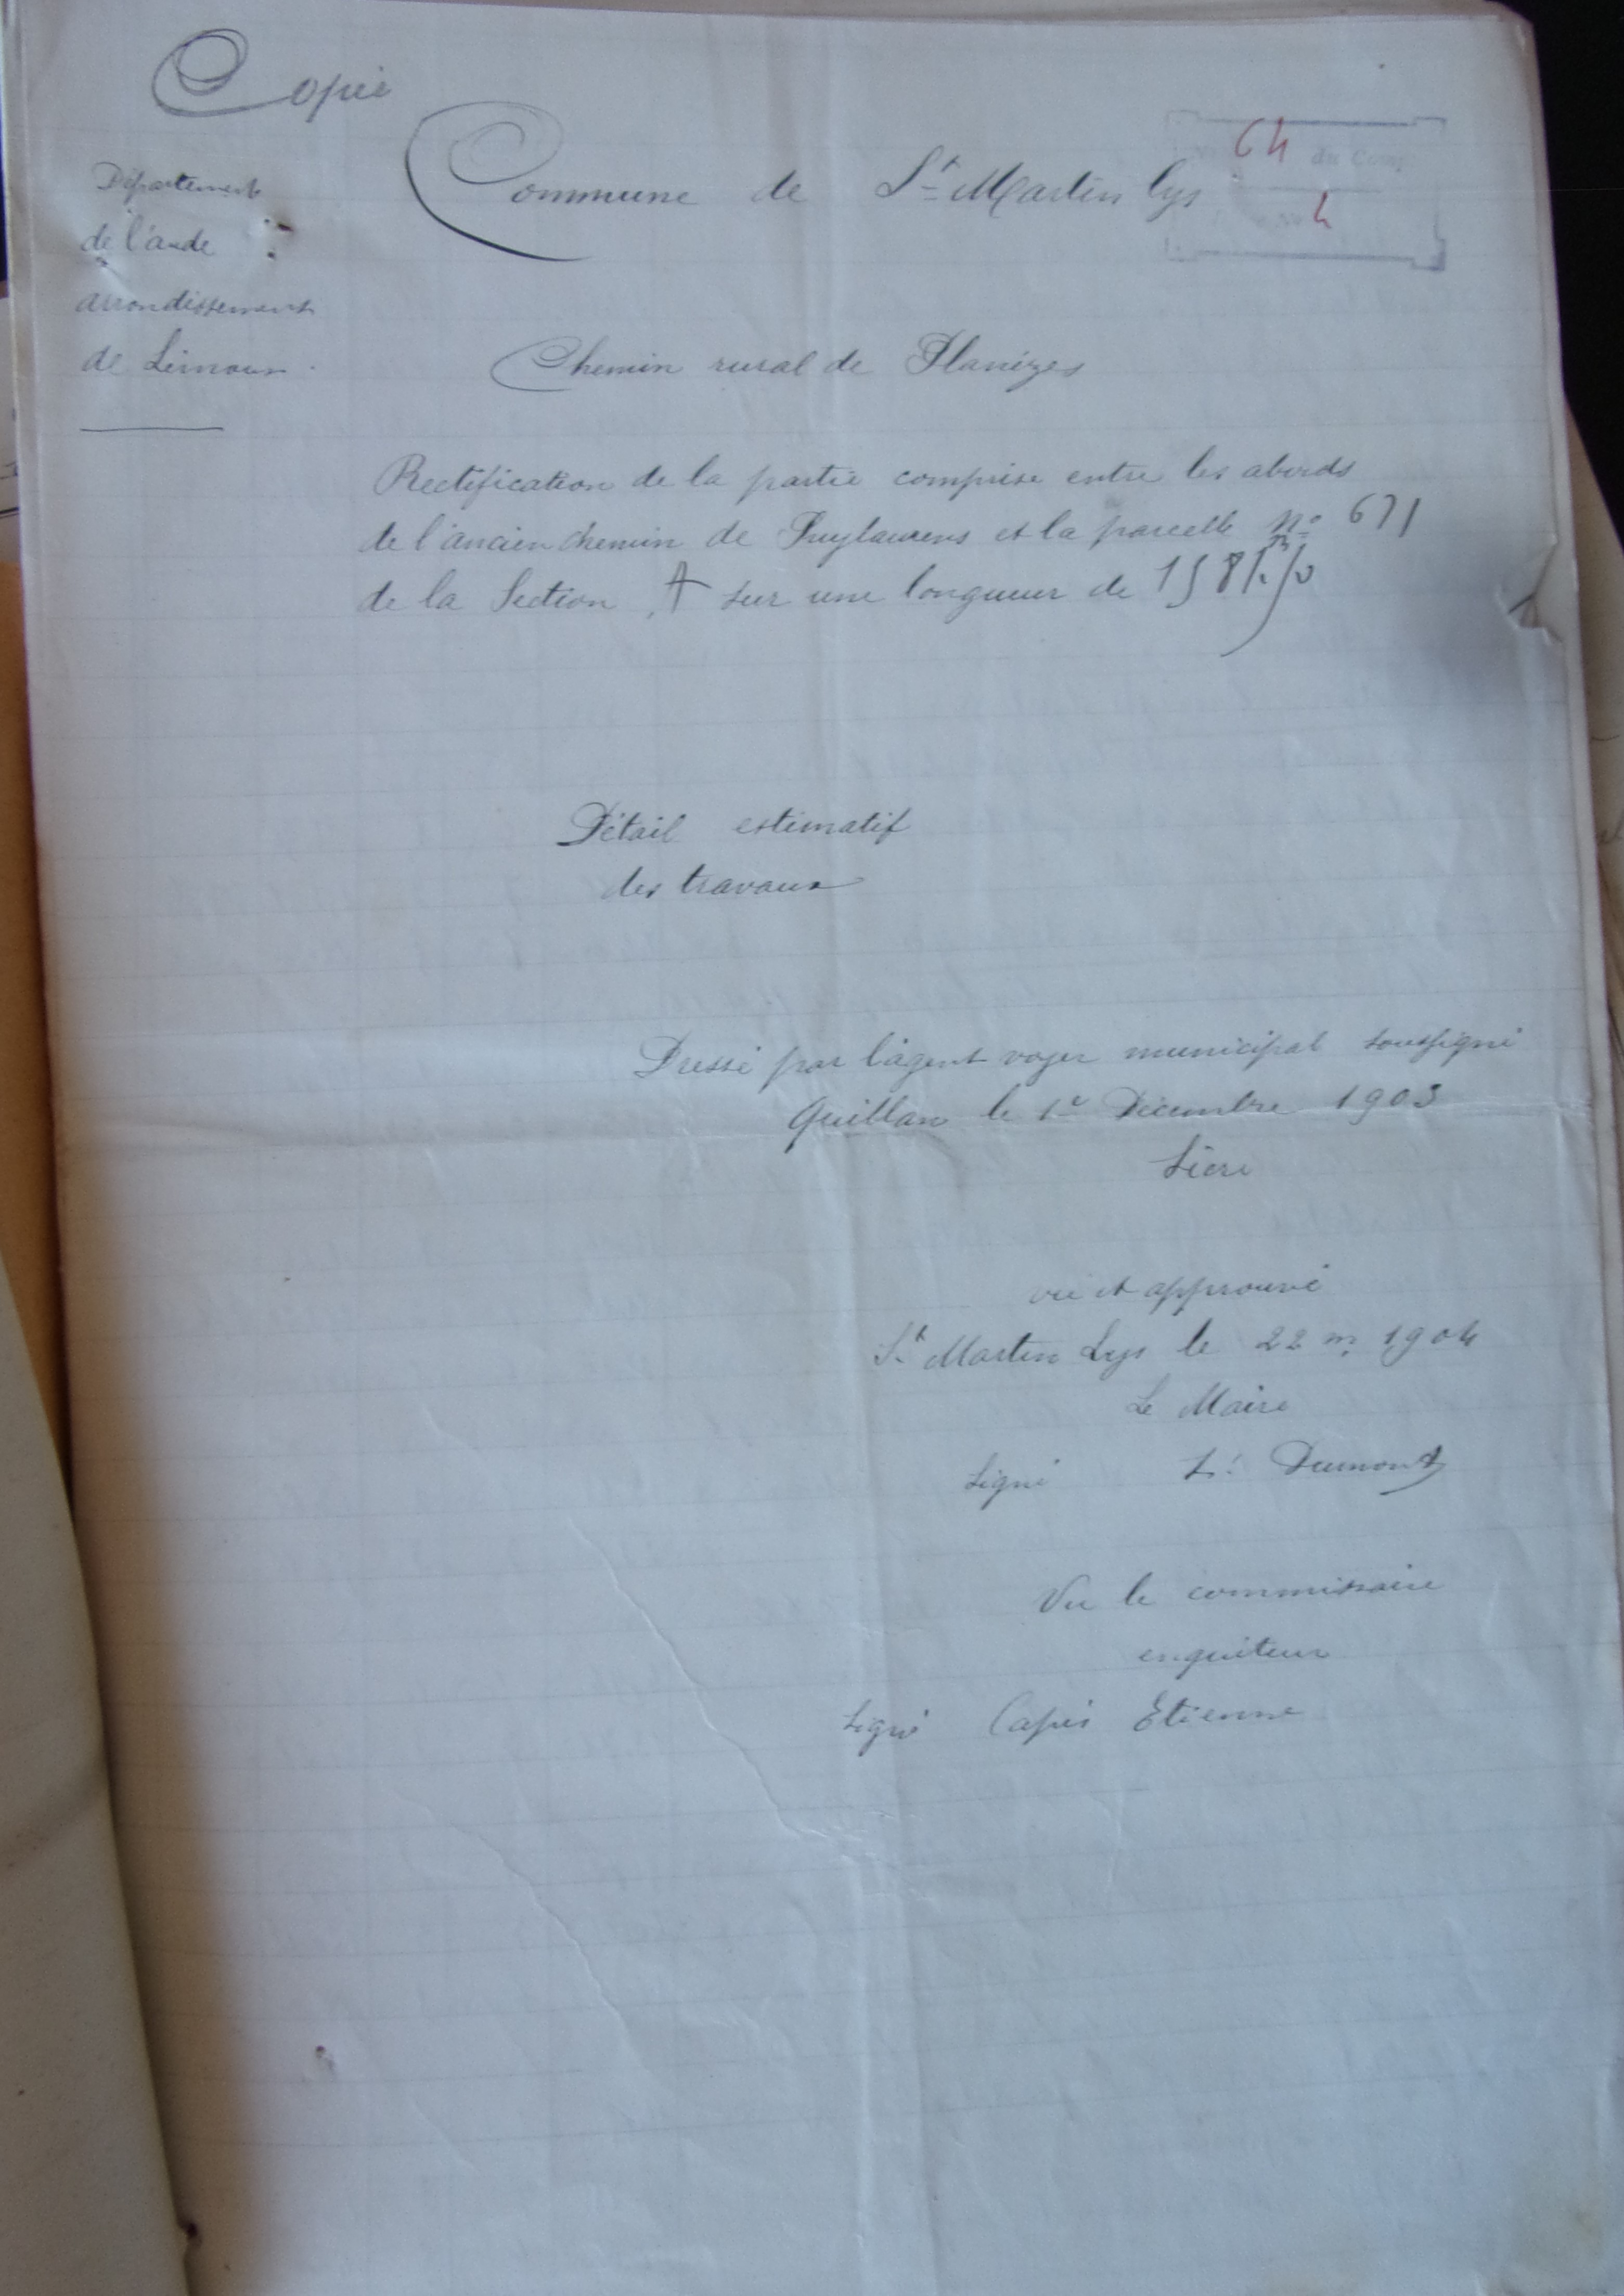 Copie
Commune de St Martin Lys
64 du Cons
4
Département
de l'aude
arrondissement
de Limoux
Chemin rural de Planèzes
Rectification de la partie comprise entre les abords
de l'ancien chemin de Puylaurens et la parcelle No 671
de la Section A sur une longueur de
Détail estimatif
des travaux
Dressé par l'agent voyer municipal soussigné
Quillan le 1e Décembre 1903
vu et approuvé
St Martin Lys le 22 m. 1904
Le Maire
Signé Dumont
Vu le commissaire
enquêteur
Signé Etienne